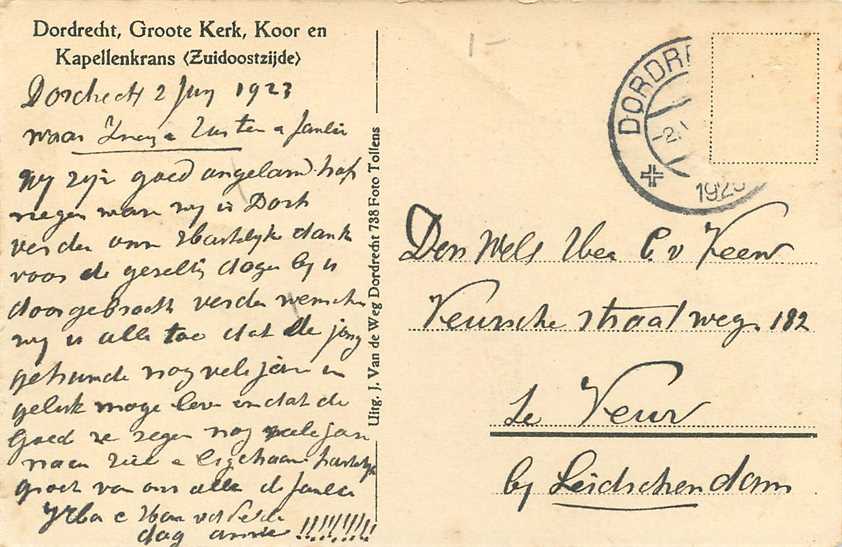 Dordrecht, Groote Kerk, Koor en
Kapellenkrans (Zuidoostzijde)
Dordrecht 2 Juny 1923
waar Zusten
wy zyn goed angeland half
negen ware wy in Dort
verder onn Hartelyke dank
voor de gesellig dagen by u
doorgebracht verder wenschen
wy u alle toe dat de jong
gehunde nog vele jaren in
geluk moge leven en dat de
Goed ze zegen nog vele jaren
naar Ziel e Ligchaam hartelyk
groet van ons alle de Famlie
dag annie !!!!!!!!
Uitg. J. Van de Weg Dordrecht 738 Foto Tollens
1-
DORDR
-2.
192
Den Wels Heer C. v Veen
Veursche straatweg. 182
te Veur
by Leidschendam